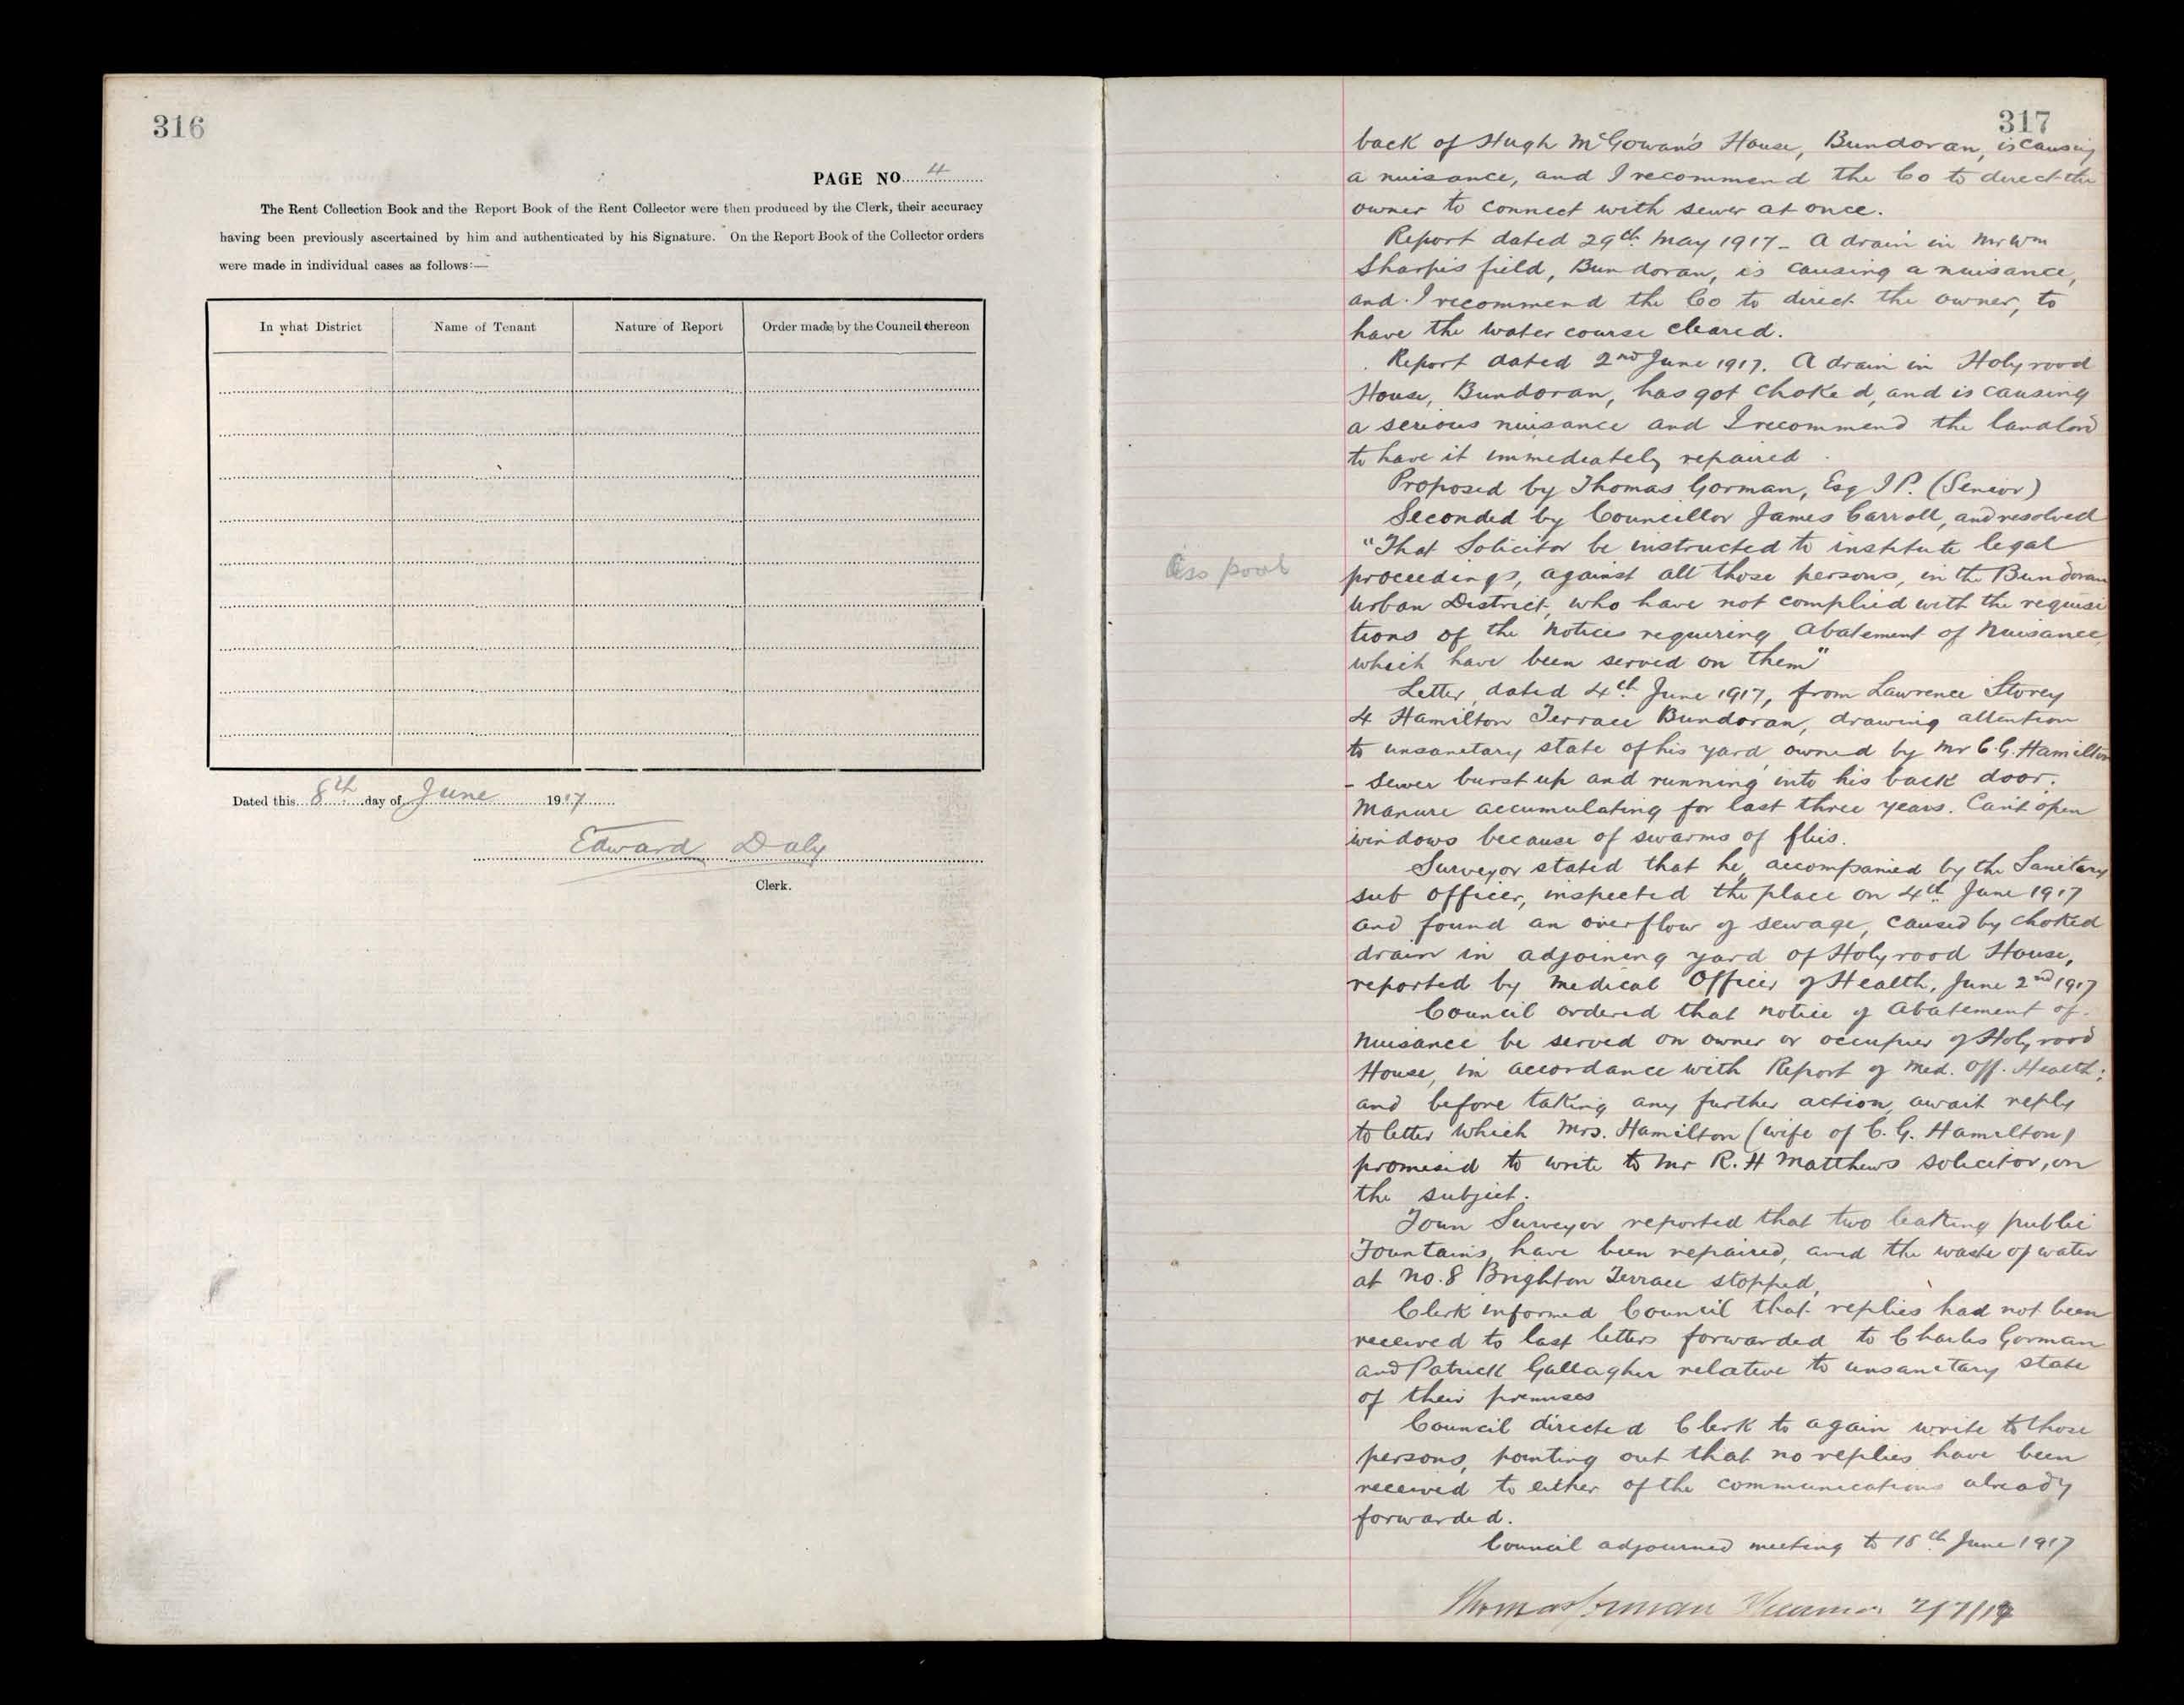 316
PAGE NO. 4
The Rent Collection Book and the Report Book of the Rent Collector were then produced by the Clerk, their accuracy
having been previously ascertained by him and authenticated by his Signature. On the Report Book of the Collector orders
were made in individual cases as follows:—
In what District Name of Tenant Nature of Report Order made by the Council thereon
Dated this 8th day of June 1917
Edward Daly
Clerk.
317
back of Hugh McGowan's House, Bundoran, is causing
a nuisance, and I recommend the Co to direct the
owner to connect with sewer at once.
Report dated 29th May 1917 - A drain in Mr Wm
Sharpe's field, Bundoran, is causing a nuisance,
and I recommend the Co to direct the owner, to
have the water course cleared.
Report dated 2nd June 1917. A drain in Holyrood
House, Bundoran, has got choked, and is causing
a serious nuisance and I recommend the landlord
to have it immediately repaired.
Proposed by Thomas Gorman, Esq J P. (Senior)
Seconded by Councillor James Carroll, and resolved
"That Solicitor be instructed to institute legal
proceedings, against all those persons, in the Bundoran
Urban District, who have not complied with the requisi
tions of the notices requiring Abatement of Nuisance,
which have been served on them"
Letter, dated 4th June 1917, from Lawrence Storey
4 Hamilton Terrace Bundoran, drawing attention
to unsanetary state of his yard owned by Mr C. G. Hamilton
- sewer burst up and running into his back door.
Manure accumulating for last three years. Can't open
windows because of swarms of flies.
Surveyor stated that he, accompanied by the Sanetary
sub officer, inspected the place on 4th June 1917
and found an overflow of sewage, caused by choked
drain in adjoining yard of Holyrood House,
reported by Medical Officer of Health, June 2nd 1917
Council ordered that notice of Abatement of
Nuisance be served on owner or occupier of Holyrood
House, in accordance with Report of Med. Off. Health;
and before taking any further action, await reply
to letter which Mrs. Hamilton (wife of C. G. Hamilton)
promised to write to Mr R. H Matthews solicitor, on
the subject.
Town Surveyor reported that two leaking public
Fountains, have been repaired, and the waste of water
at No. 8 Brighton Terrace stopped,
Clerk informed Council that replies had not been
received to last letters forwarded to Charles Gorman
and Patrick Gallagher relative to unsanetary state
of their premises
Council directed Clerk to again write to those
persons, pointing out that no replies have been
received to either of the communications already
forwarded.
Council adjourned meeting to 18th June 1917
Thomas Gorman